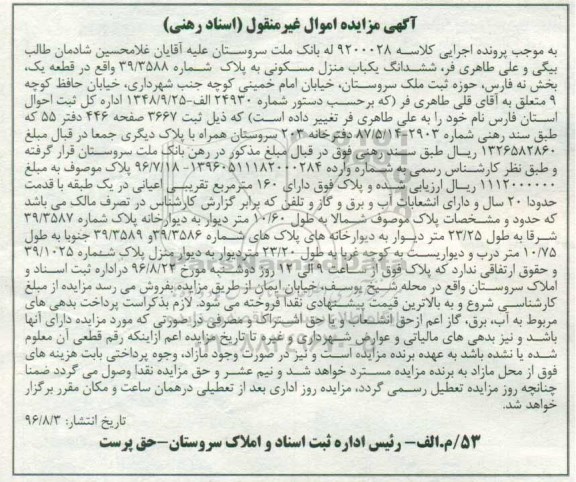 آگهی مزایده اموال غیرمنقول (اسناد رهنی)
به موجب پرونده اجرایی کلاسه ۹۲۰۰۰۲۸ له بانک ملت سروستان علیه آقایان غلامحسین شادمان طالب
بیگی و علی طاهری فر، ششدانگ یکباب منزل مسکونی به پلاک شماره ۳۹/۳۵۸۸ واقع در قطعه یک،
بخش نه فارس، حوزه ثبت ملک سروستان، خیابان امام خمینی کوچه جنب شهرداری، خیابان حافظ کوچه
۹ متعلق به آقای قلی طاهری فر (که برحسب دستور شماره ۲۴۹۳۰ الف-۱۳۴۸/۹/۲۵ اداره کل ثبت احوال
استان فارس نام خود را به علی طاهری فر تغییر داده است) که ذیل ثبت ۳۶۶۷ صفحه ۴۴۶ دفتر ۵۵ که
طبق سند رهنی شماره ۲۹۰۳-۸۷/۵/۱۴ دفترخانه ۲۰۳ سروستان همراه با پلاک دیگری جمعا در قبال مبلغ
۱۳۲۶۵۸۲۸۶۰ ریال طبق سند رهنی فوق در قبال مبلغ مذکور در رهن بانک ملت سروستان قرار گرفته
و طبق نظر کارشناس رسمی به شماره وارده ۱۳۹۶۰۵۱۱۱۸۲۰۰۰۲۸۴-۹۶/۷/۱۸ پلاک موصوف به مبلغ
۱۱۱۲۰۰۰۰۰۰ ریال ارزیابی شده و پلاک فوق دارای ۱۶۰ مترمربع تقریبی اعیانی در یک طبقه با قدمت
حدودا ۲۰ سال و دارای انشعابات آب و برق و گاز و تلفن که برابر گزارش کارشناس در تصرف مالک می باشد
که حدود و مشخصات پلاک موصوف شمالا به طول ۱۰/۶۰ متر دیوار به دیوارخانه پلاک شماره ۳۹/۳۵۸۷
شرقا به طول ۲۳/۲۵ متر دیوار به دیوارخانه های پلاک های شماره ۳۹/۳۵۸۶ و ۳۹/۳۵۸۹ جنوبا به طول
۱۰/۷۵ متر درب و دیواریست به کوچه غربا به طول ۲۳/۲۰ متر دیوار به دیوار منزل پلاک شماره ۳۹/۱۰۲۵
و حقوق ارتفاقی ندارد که پلاک فوق از ساعت ۹ الی ۱۲ روز دوشنبه مورخ ۹۶/۸/۲۲ دراداره ثبت اسناد و
املاک سروستان واقع در محله شیخ یوسف، خیابان ایمان از طریق مزایده بفروش می رسد مزایده از مبلغ
کارشناسی شروع و به بالاترین قیمت پیشنهادی نقدا فروخته می شود. لازم بذکراست پرداخت بدهی های
مربوط به آب، برق، گاز اعم ازحق انشعاب و یا حق اشتراک و مصرف درصورتی که مورد مزایده دارای آنها
باشد و نیز بدهی های مالیاتی و عوارض شهرداری و غیره تا تاریخ مزایده اعم ازاینکه رقم قطعی آن معلوم
شده یا نشده باشد به عهده برنده مزایده است و نیز در صورت وجود مازاد، وجوه پرداختی بابت هزینه های
فوق از محل مازاد به برنده مزایده مسترد خواهد شد و نیم عشر و حق مزایده نقدا وصول می گردد ضمنا
چنانچه روز مزایده تعطیل رسمی گردد، مزایده روز اداری بعد از تعطیلی درهمان ساعت و مکان مقرر برگزار
خواهد شد.
تاریخ انتشار: ۹۶/۸/۳
۵۳/م.الف- رئیس اداره ثبت اسناد و املاک سروستان-حق پرست